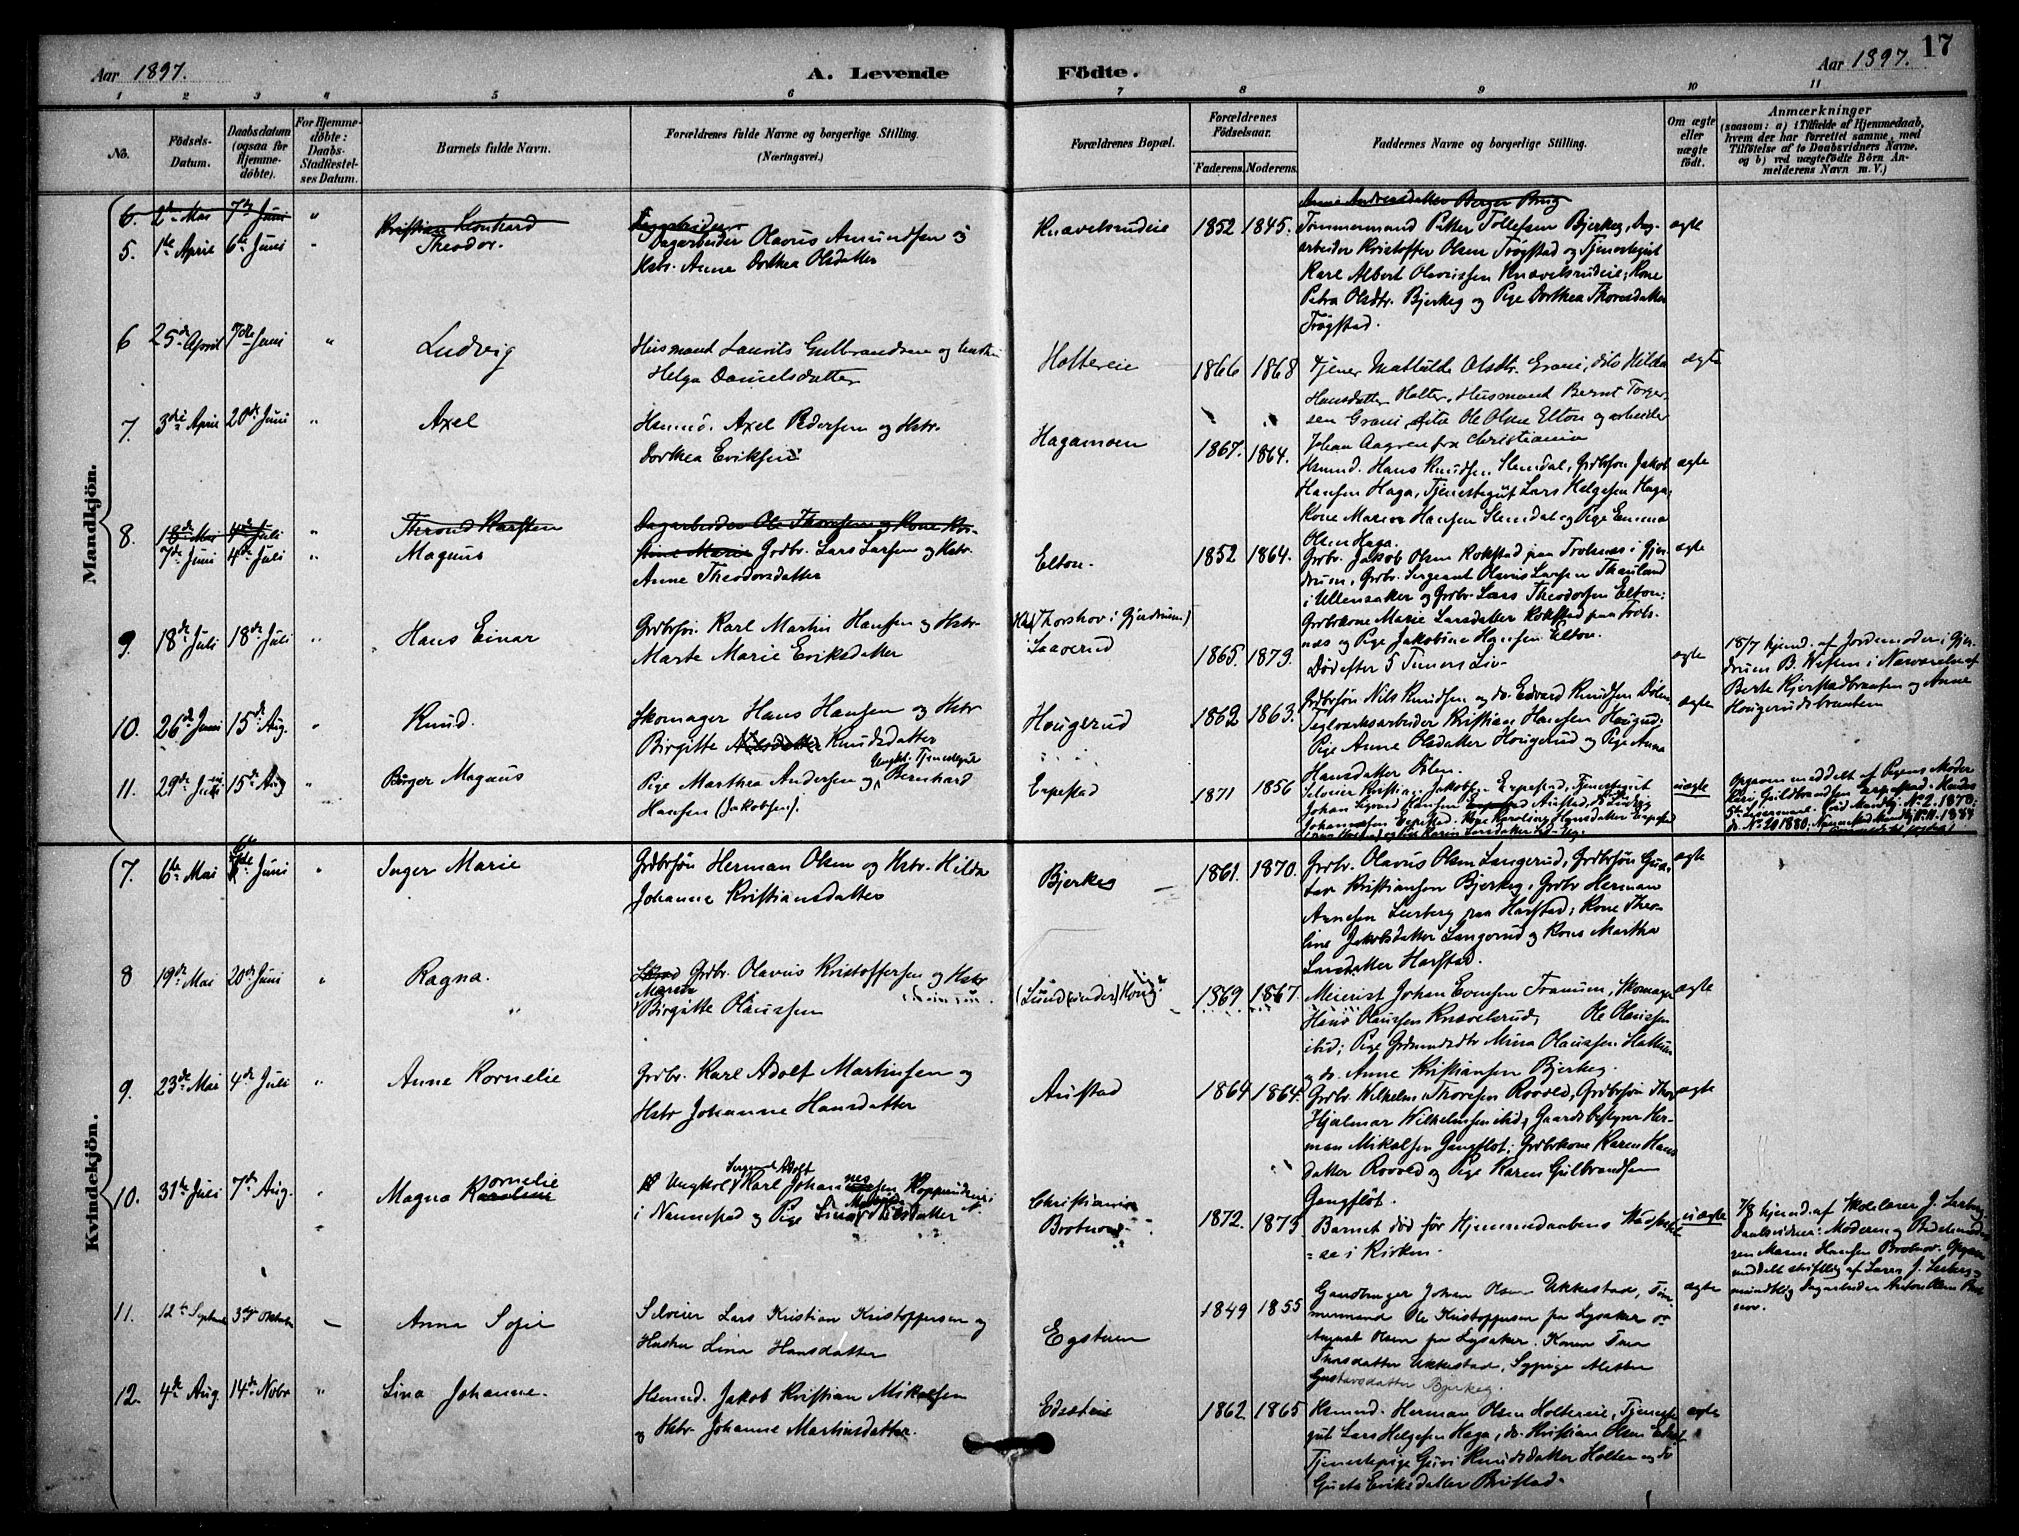 Aar 1897.
A. Levende Födte.
Aar 1897. 17
1 2 3 4 5 6 7 8 9 10 11
No.
Födsels-Datum.
Daabsdatum (ogsaa for Hjemme-döbte).
For Hjemme-döbte: Daabs-Stadfæstel-ses Datum.
Barnets fulde Navn.
Forældrenes fulde Navne og borgerlige Stilling.
(Næringsvei.)
Forældrenes Bopæl.
Forældrenes Födselsaar.
Faderens. Moderens.
Faddernes Navne og borgerlige Stilling.
Om ægte eller uægte födt.
Anmærkninger
(saasom: a) i Tilfælde af Hjemmedaab, hvem der har forrettet samme, med Tilföielse af to Daabsvidners Navne. og b) ved uægtefödte Börn An-melderens Navn m. V.)
Mandkjön.
6. 2de Mai 7de Juni " Kristian Leonhard
Anne Andersdatter Berger Brug
5. 1ste April 6te Juni " Theodor.
Dagarbeider Olavus Amundsen og
Hstr. Anne Dorthea Olsdatter
Knævelsrudeie 1852 1845.
Tømmermand Petter Tollefsen Bjerkeg, Dag-
arbeider Kristoffer Olsen Trøgstad og Tjenestegut
Karl Albert Olavussen Knævelsrudeie; Kone
Petra Olsdtr. Bjerkeg og Pige Dorthea Thoresdatter
Trøgstad.
ægte
6 25de April 7de Juni " Ludvig
Husmand Laurits Gulbrandsen og Hustru
Helga Danielsdatter
Holtereie 1866 1868
Tjener Mathilde Olsdtr. Grani, dito Hilda
Hansdatter Holter, Husmand Bernt Torger-
sen Grani, dito Ole Olsen Elton og arbeider
Johan Aagren fra Christiania
ægte
7. 3die April 20de Juni " Axel
Axel Pedersen og Hstr.
Dorthea Eriksen
Hagamoen 1867. 1864.
Hsmnd. Hans Knudsen Slemdal, Grdbrsøn Jakob
Hansen Haga, Tjenestegut Lars Helgesen Haga;
Kone Marie Hansen Slemdal og Pige Emma
Olsen Haga.
ægte
8. 18de Mai 4de Juli " Thorand Karsten
Dagarbeider Ole Thoresen og Kone Kri-
stine Marie
7de Juni 4de Juli " Magnus
Grdbr. Lars Larsen og Hstr.
Anne Theodorsdatter
Elton. 1852 1864.
Grbr. Jakob Olsen Rokstad paa Trolsnæs i Gjer-
drum, Grbr. Sergeant Olavus Larsen Thauland
i Ullensaker og Grbr. Lars Theodorsen Elton;
Grdbrkone Marie Larsdatter Rokstad paa Trols-
næs og Pige Jakobine Hansen Elton.
ægte
9. 18de Juli 18de Juli " Hans Einar
Grdbrsøn. Karl Martin Hansen og Hstr
Marte Marie Eriksdatter
(Thorshov i Gjerdrum)
1865. 1879.
Død efter 5 Timers Liv.
ægte
18/7 hjemd. af Jordemoder i Gjer-
drum B. Westen i Nærværelse af
Berte Kjerstadbraaten og Anne
Hougerudsbraaten
10. 26de Juni 15de Aug. " Knud.
Skomager Hans Hansen og Hstr
Birgitte Knudsdatter
Hougerud 1862 1863.
Grdbrsøn Nils Knudsen og do. Edvard Knudsen Dølen
Teglværksarbeider Kristian Hansen Hougerud;
Pige Anne Olsdatter Hougerud og Pige Anna
Hansdatter Dølen.
ægte
11. 29de Juni 15de Aug " Birger Magnus
Pige Marthea Andersen og Ungkl. Tjenestegut Bernhard
Hansen (Jakobsen).
Erpestad 1871 1856
Selveier Kristian Jakobsen Erpestad, Tjenestegut
Johan Sigvard Hansen Austad, do Ludvig
Johannesen Erpestad. Pige Karoline Hansdatter Erpestad
uægte
Opgaven meddelt af Pigens Moder
Kari Guldbrandsen Erpestad.
Kvindekjön.
7. 6te Mai 6te Juni " Inger Marie
Grdbrsøn Herman Olsen og Hstr. Hilda
Johanne Kristiansdatter
Bjerkeg 1861. 1870.
Grdbr. Olavus Olsen Langerud, Grdbrsøn Gus-
tav Kristiansen Bjerkeg, Grdbr Herman
Arnesen Lerberg paa Harstad; Kone Theo-
line Jakobsdatter Langerud og Kone Martha
Larsdatter Harstad.
ægte
8 19de Mai 20de Juni " Ragna.
Grdbr. Olavus Kristoffersen og Hstr
Maren
Birgitte Olaussen
1869 1867.
Meierist Johan Evensen Tranum, Skomager
Hans Olaussen Knævelsrud, Ole Olaussen
ibid; Pige Grdmandsdtr Mina Olaussen
og do. Anne Kristiansen Bjerkeg.
ægte
9. 23de Mai 4de Juli " Anne Kornelie
Grdbr. Karl Adolf Martinsen og
Hstr Johanne Hansdatter
Austad 1864 1864.
Grdbr. Wilhelm Thoresen Rovold, Grdbrsøn Thor
Hjalmar Wilhelmsen ibid, Gaardsbestyrer Her-
man Mikalsen Gangfløt; Grdbrkone Karen Hans
datter Rovold og Pige Karen Gulbrandsen
Gangfløt.
ægte
10. 31te Juli 7de Aug. " Magna Kornelie Karoline
Ungkl. Sergeant Adolf Karl Johannessen
i Nannestad og Pige Lina Nilsdatter
Christiania
Brotnov 1872. 1875.
Barnet død før Hjemmedaabens Stadfæstel-
se i Kirken.
uægte
7/8 hjemd. af Skolelærer J. Lerberg
Daabsvidner: Moderen og
Marie Hansen Brotnov. Opgaven
meddelt skriftlig af Lærer J. Lerberg,
mundtlig Dagarbeider Anton Olsen Brot-
nov.
11. 12te September 3die Oktober - Anna Sofie
Selveier Lars Kristian Kristoffersen og
Hustru Lina Hansdatter
Egstuen 1849 1855
Gaardbruger Johan Olsen Ukkestad, Tøm-
mermand Ole Kristoffersen fra Lysaker og
August Olsen fra Lysaker. Konen
Thorsdatter Ukkestad, Sypige Mette
Gustavsdatter Bjerkeg.
ægte
12. 4de Aug. 14de Novbr " Lina Johanne.
Hsmnd. Jakob Kristian Mikalsen
og Hstr Johanne Martinsdatter.
1862 1865
Hsmnd. Herman Olsen Holtereie, Tjeneste-
gut Lars Helgesen Haga, do. Kristian Olsen
Tjenestepige Guri Knudsdatter Holter og do
Gusta Eriksdatter Brustad.
ægte